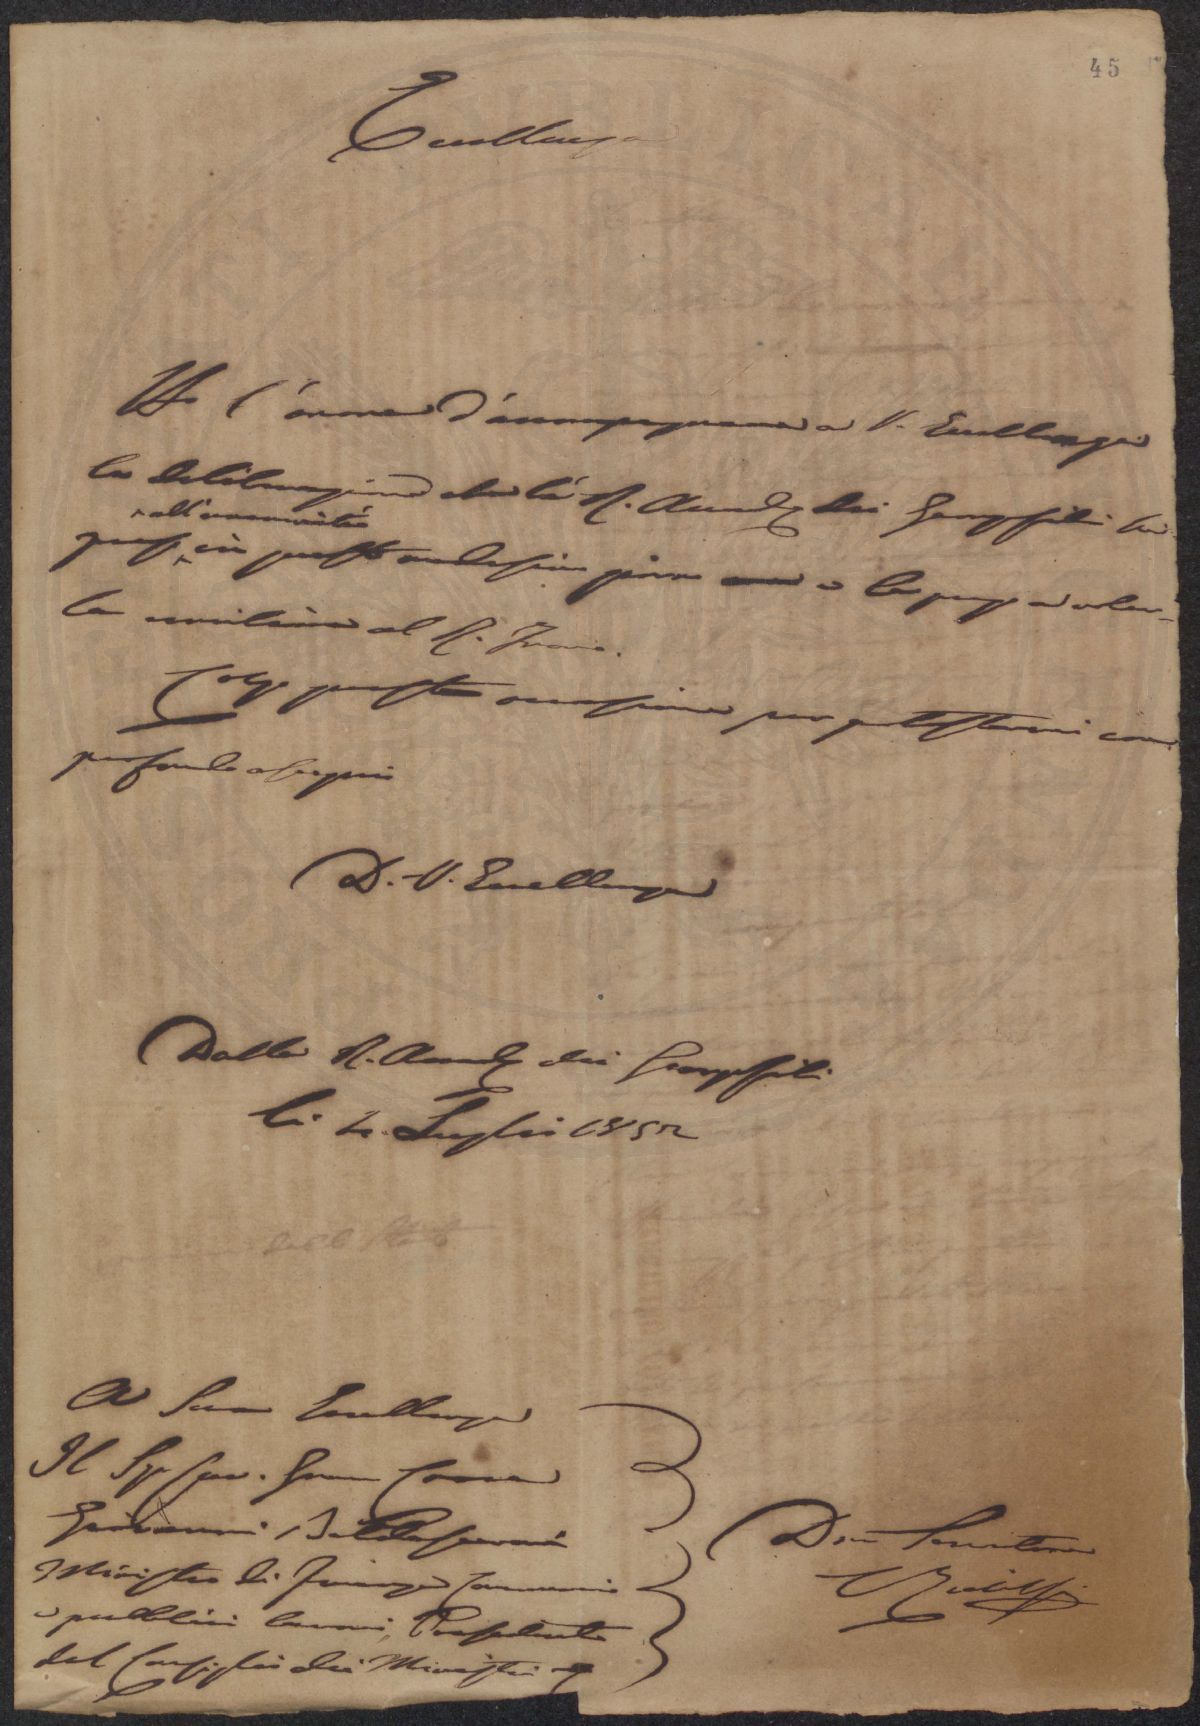 45
Eccellenza
Ho l'onore d'accompagnare a V. Eccellenza
la deliberazione che la R. Accad. dei Georgofili ha
all'unanimità
presa in questo medesimo giorno e la prego a voler-
la umiliare al R. Trono.
Colgo questa occasione per protestarmi con
profondo ossequio
D. V. Eccellenza
Dalla R. Accad. dei Georgofili
li 4. Luglio 1852
A Sua Eccellenza
Il Sig. Cav. Gran Croce
Giovanni Baldasseroni
Ministro di Finanze Commercio
e pubblici lavori, Presidente
del Consiglio dei Ministri
Dev. Servitore
C Ridolfi